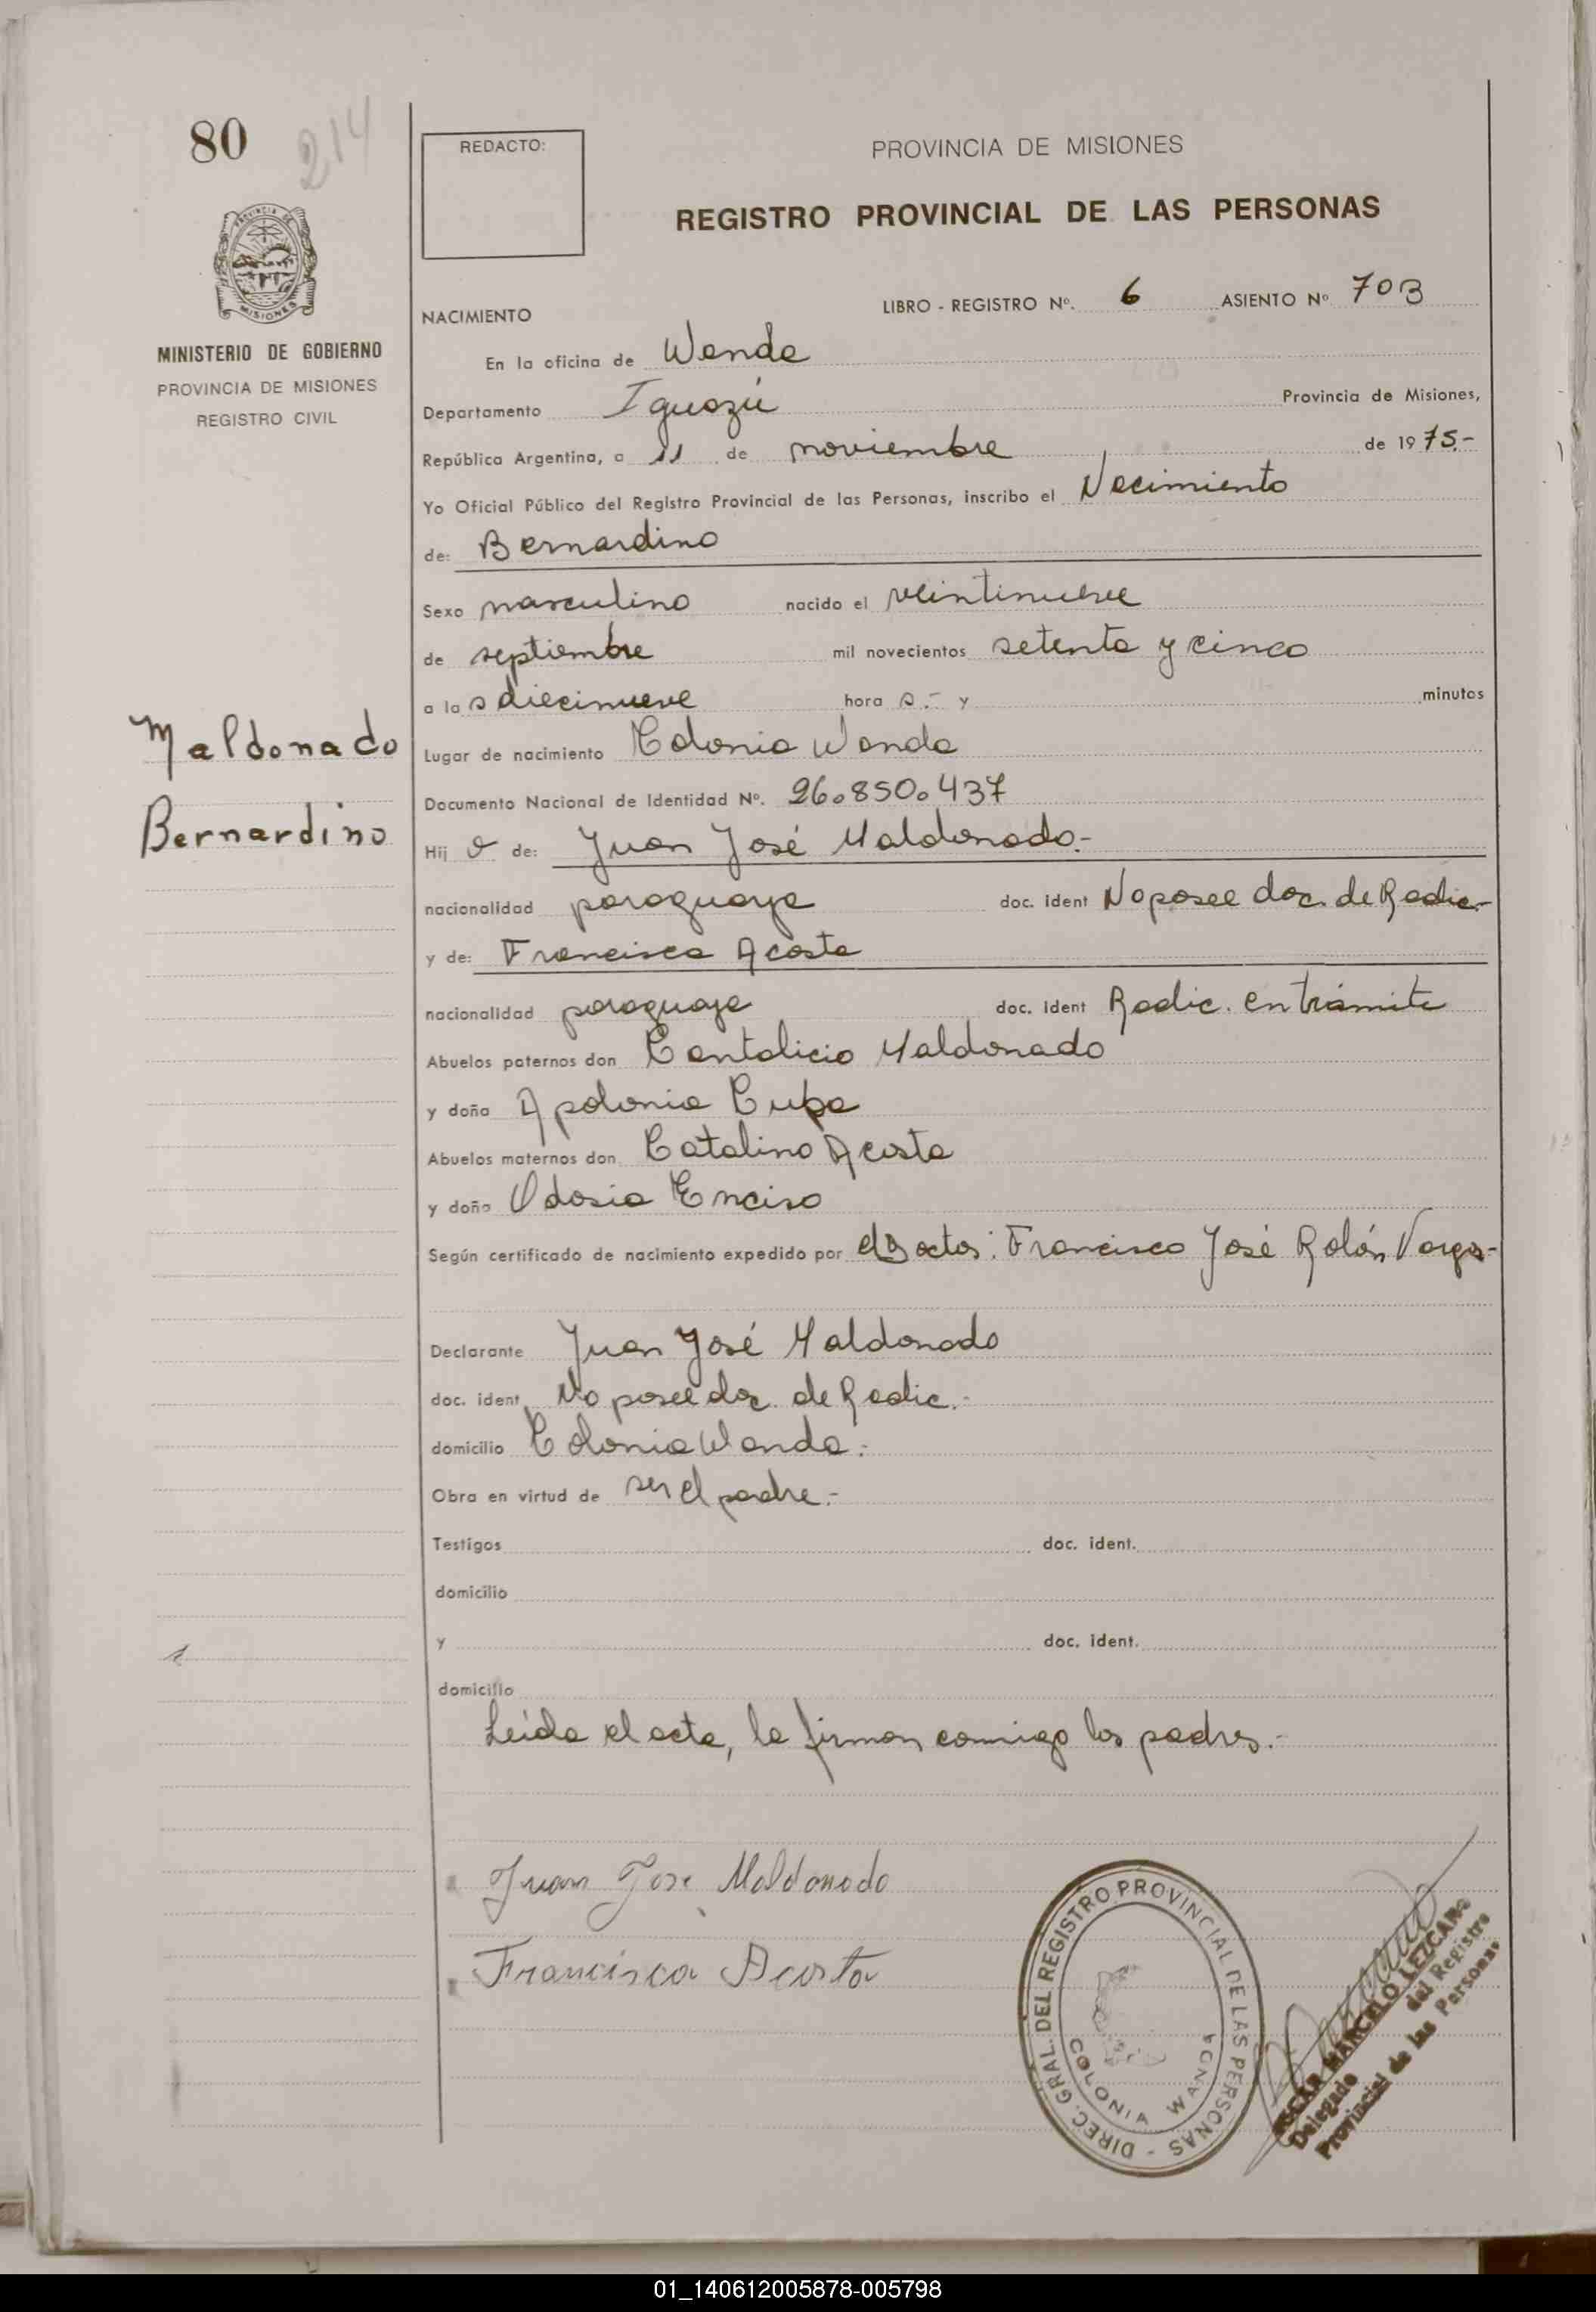 80
214
REDACTO:
PROVINCIA DE MISIONES
REGISTRO PROVINCIAL DE LAS PERSONAS
MISIONES
MINISTERIO DE GOBIERNO
PROVINCIA DE MISIONES
REGISTRO CIVIL
NACIMIENTO
LIBRO - REGISTRO Nº. 6 ASIENTO Nº 703
En la oficina de Wanda
Departamento Iguazú Provincia de Misiones,
República Argentina, a 11 de noviembre de 1975.-
Yo Oficial Público del Registro Provincial de las Personas, inscribo el Nacimiento
de: Bernardino
Sexo masculino nacido el veintinueve
de septiembre mil novecientos setenta y cinco
a la s diecinueve hora s.- y minutos
Maldonado
Bernardino
Lugar de nacimiento Colonia Wanda
Documento Nacional de Identidad Nº. 26.850.437
Hij o de: Juan José Maldonado.-
nacionalidad paraguaya doc. ident No posee doc. de Radic.-
y de: Francisca Acosta
nacionalidad paraguaya doc. ident Radic. en trámite
Abuelos paternos don Cantalicio Maldonado
y doña Apolonia Cuba
Abuelos maternos don Catalino Acosta
y doña Odosia Enciso
Según certificado de nacimiento expedido por el Doctor: Francisco José Rolón Vargas-
Declarante Juan José Maldonado
doc. ident. No posee doc. de Radic.-
domicilio Colonia Wanda.-
Obra en virtud de ser el padre.-
Testigos doc. ident.
domicilio
y doc. ident.
domicilio
Leída el acta, la firman conmigo los padres.-
Juan Jose Maldonado
Francisca Acosta
DIREC. GRAL. DEL REGISTRO PROVINCIAL DE LAS PERSONAS -
COLONIA WANDA
OSCAR MARCELO LEZCANO
Delegado del Registro
Provincial de las Personas
01_140612005878-005798